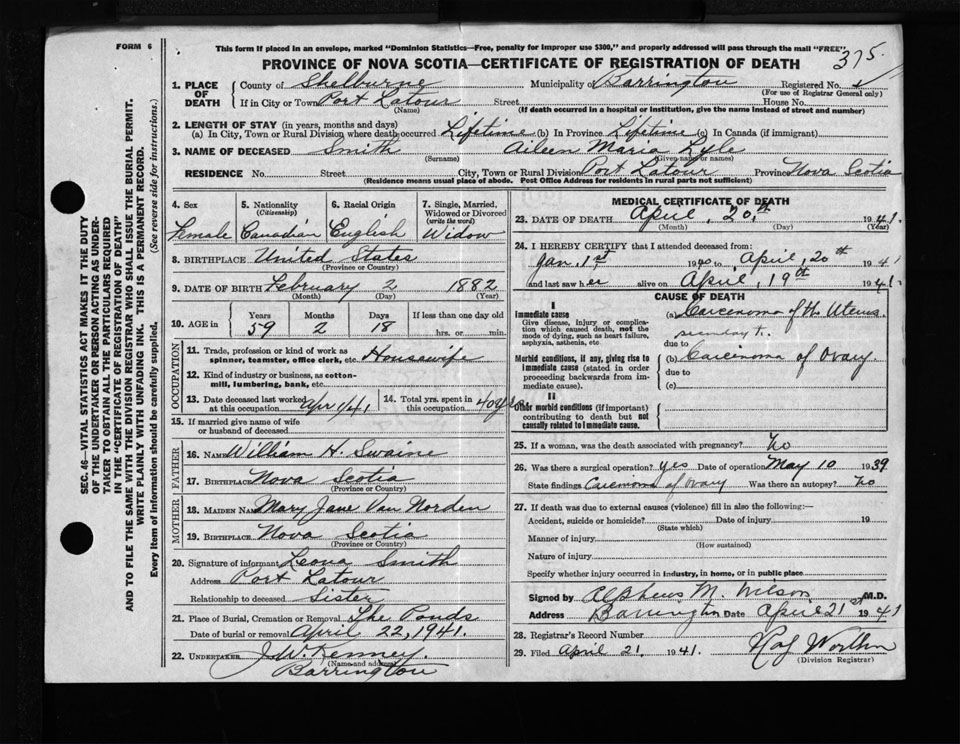 FORM 6
This form if placed in an envelope, marked "Dominion Statistics—Free, penalty for improper use $300," and properly addressed will pass through the mail "FREE"
375.
PROVINCE OF NOVA SCOTIA—CERTIFICATE OF REGISTRATION OF DEATH
1. PLACE OF DEATH
County of Shelburne Municipality of Barrington Registered No.
(For use of Registrar General only)
If in City or Town Port Latour Street House No.
(Name) (If death occurred in a hospital or institution, give the name instead of street and number)
2. LENGTH OF STAY (in years, months and days)
(a) In City, Town or Rural Division where death occurred Lifetime (b) In Province Lifetime (c) In Canada (if immigrant)
3. NAME OF DECEASED Smith Aileen Maria Lyle
(Surname) (Given name or names)
RESIDENCE No. Street City, Town or Rural Division Port Latour Province Nova Scotia
(Residence means usual place of abode. Post Office Address for residents in rural parts not sufficient)
4. Sex 5. Nationality (Citizenship) 6. Racial Origin 7. Single, Married, Widowed or Divorced (write the word)
Female Canadian English Widow
8. BIRTHPLACE United States
(Province or Country)
9. DATE OF BIRTH February 2 1882
(Month) (Day) (Year)
10. AGE in Years Months Days If less than one day old
59 2 18 hrs. or min.
OCCUPATION
11. Trade, profession or kind of work as spinner, teamster, office clerk, etc. Housewife
12. Kind of industry or business, as cotton-mill, lumbering, bank, etc.
13. Date deceased last worked at this occupation Apr 1/41 14. Total yrs. spent in this occupation 40 yrs
15. If married give name of wife or husband of deceased
FATHER
16. Name William H. Swaine
17. Birthplace Nova Scotia
(Province or Country)
MOTHER
18. Maiden Name Mary Jane Van Norden
19. Birthplace Nova Scotia
(Province or Country)
20. Signature of informant Leona Smith
Address Port Latour
Relationship to deceased Sister
21. Place of Burial, Cremation or Removal The Ponds
Date of burial or removal April 22, 1941.
22. UNDERTAKER J. W. Kenney.
(Name and address)
Barrington
MEDICAL CERTIFICATE OF DEATH
23. DATE OF DEATH April, 20th 1941.
(Month) (Day) (Year)
24. I HEREBY CERTIFY that I attended deceased from:
Jan. 1st 1940 to April, 20th 1941
and last saw her alive on April, 19th 1941.
CAUSE OF DEATH
I
Immediate cause
Give disease, injury or complication which caused death, not the mode of dying, such as heart failure, asphyxia, asthenia, etc
(a) Carcenoma of th Uterus
due to
Morbid conditions, if any, giving rise to immediate cause (stated in order proceeding backwards from immediate cause).
(b) Carcinoma of Ovary.
due to
(c)
II
Other morbid conditions (if important) contributing to death but not causally related to immediate cause.
25. If a woman, was the death associated with pregnancy? No
26. Was there a surgical operation? Yes Date of operation May 10 1939
State findings Carcenoma of Ovary Was there an autopsy? No
27. If death was due to external causes (violence) fill in also the following:—
Accident, suicide or homicide? Date of injury 19
(State which)
Manner of injury
(How sustained)
Nature of injury
Specify whether injury occurred in industry, in home, or in public place
Signed by Alpheus M. Wilson M.D.
Address Barrington Date April 21st 1941
28. Registrar's Record Number
29. Filed April 21, 1941.
(Division Registrar)
SEC. 46—VITAL STATISTICS ACT MAKES IT THE DUTY
OF THE UNDERTAKER OR PERSON ACTING AS UNDER-
TAKER TO OBTAIN ALL THE PARTICULARS REQUIRED
IN THE "CERTIFICATE OF REGISTRATION OF DEATH"
AND TO FILE THE SAME WITH THE DIVISION REGISTRAR WHO SHALL ISSUE THE BURIAL PERMIT.
WRITE PLAINLY WITH UNFADING INK. THIS IS A PERMANENT RECORD.
Every item of information should be carefully supplied. (See reverse side for instructions.)